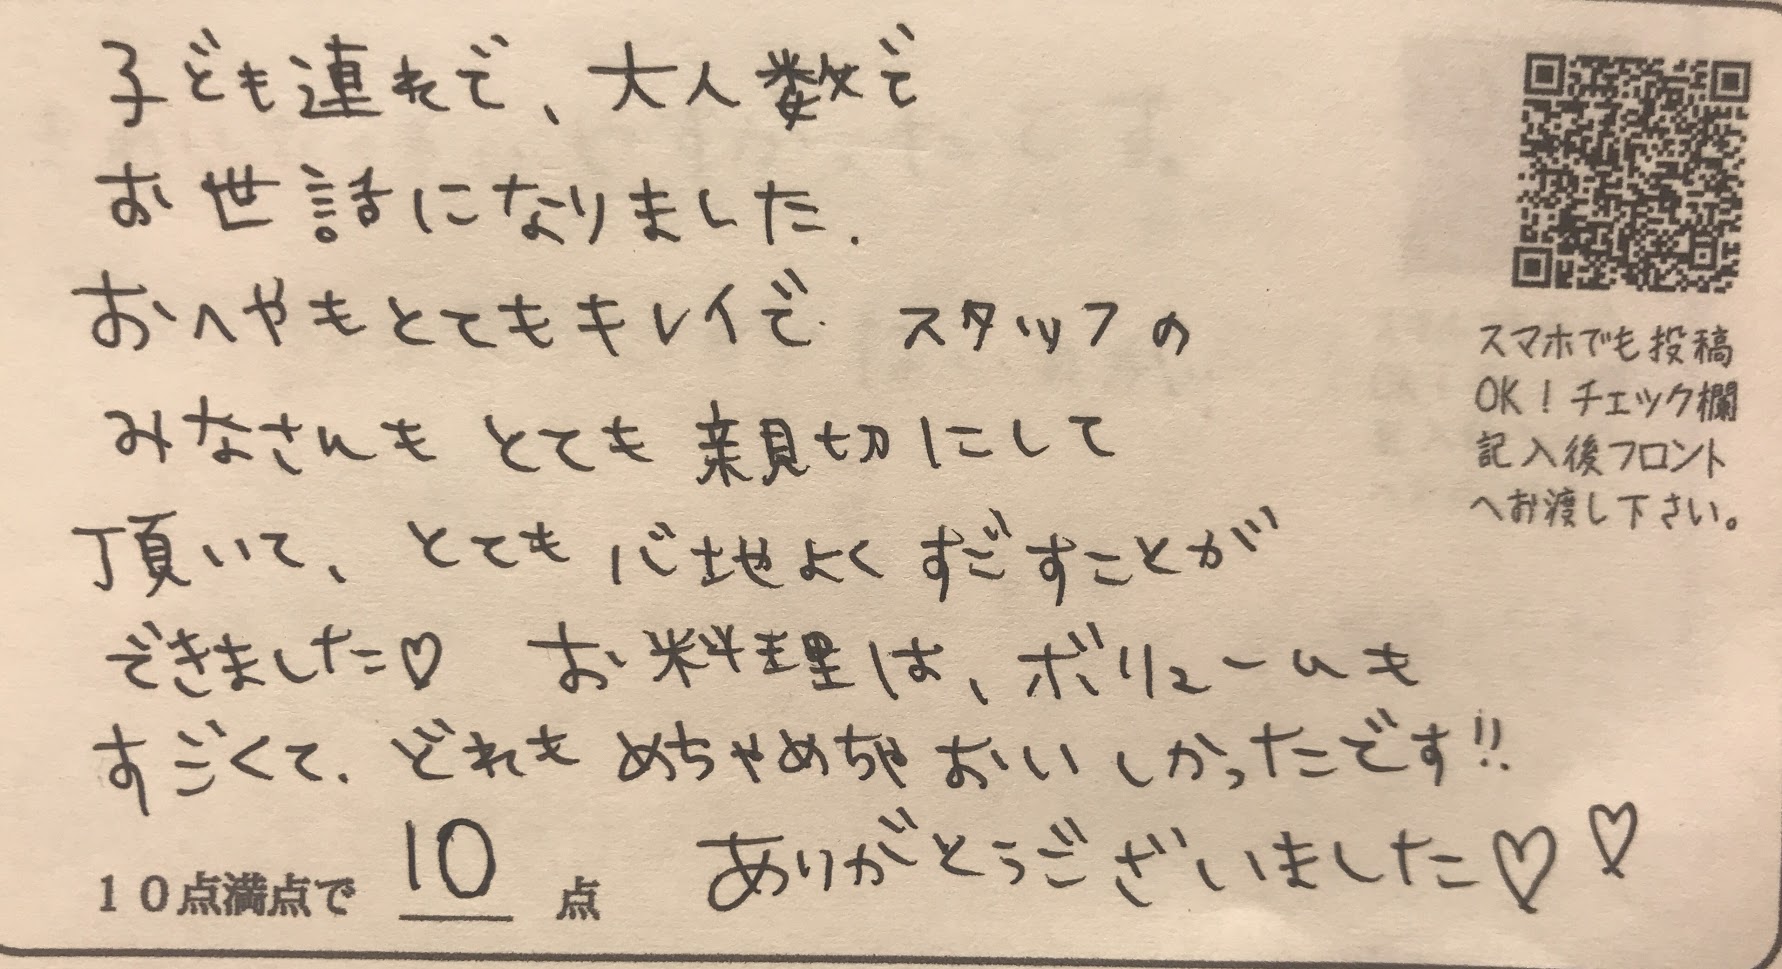 子ども連れで、大人数で
お世話になりました.
おへやもとてもキレイで スタッフの
みなさんも とても親切にして
頂いて、とても心地よくすごすことが
できました♡ お料理は、ボリュームも
すごくて、どれもめちゃめちゃおいしかったです!!
10点満点で 10 点 ありがとうございました♡♡
スマホでも投稿
OK！チェック欄
記入後フロント
へお渡し下さい。